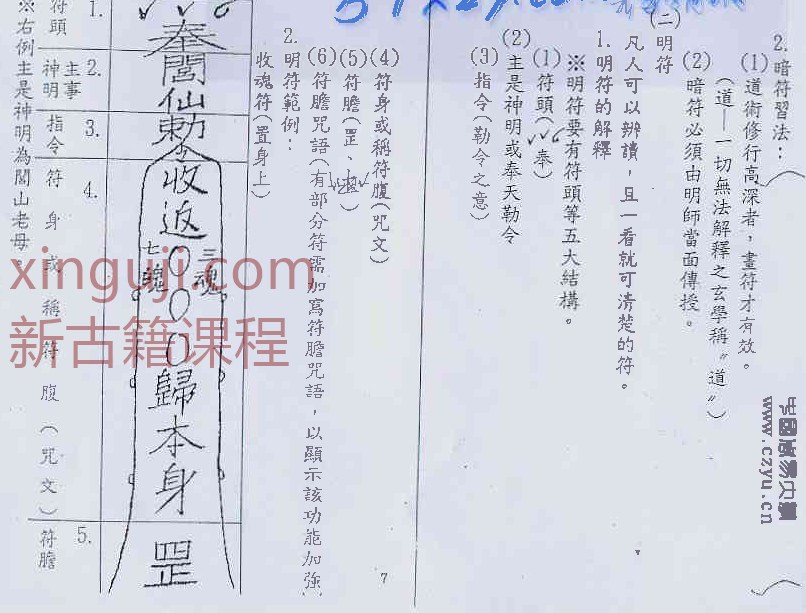 2. 暗符習法：
(1) 道術修行高深者，畫符才有效。
(道—一切無法解釋之玄學稱〝道〞)
(2) 暗符必須由明師當面傳授。
(二)
明符
凡人可以辨讀，且一看就可清楚的符。
1. 明符的解釋
※明符要有符頭等五大結構。
(1) 符頭(✓✓✓奉)
(2) 主是神明或奉天勅令
(3) 指令(勒令之意)
(4) 符身或稱符腹(咒文)
(5) 符膽(罡、
(6) 符膽咒語(有部分符需加寫符膽咒語，以顯示該功能加強)
2. 明符範例：
收魂符(置身上)
奉
閭仙勅令
收返
三魂
七魄
○○○
歸本身
罡
1. 符頭
2. 主事神明
3. 指令
4. 符身或稱符腹(咒文)
5. 符膽
※右例主是神明為閭山老母。
7
xinguji.com
新古籍课程
www.czyu.cn